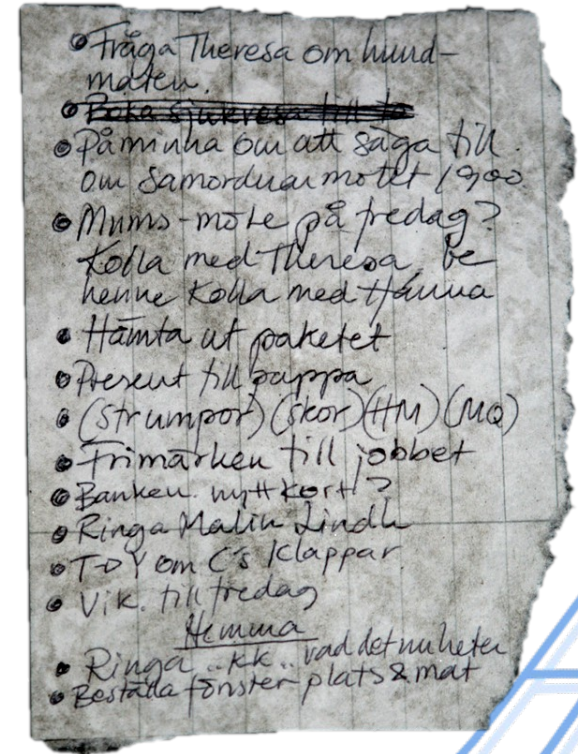 • Fråga Theresa om hund-
maten.
• Boka sjukresa till
• Påminna om att säga till
om samordnarmötet 1900
• Mums-möte på fredag?
Kolla med Theresa, be
henne kolla med Hanna
• Hämta ut paketet
• Present till pappa
• (strumpor) (skor) (HM) (MQ)
• Frimärken till jobbet
• Banken. nytt kort?
• Ringa Malin Lindh
• T-D Y om C's klappar
• Vik. till fredag
Hemma
• Ringa "KK" vad det nu heter
• Beställa fönsterplats & mat